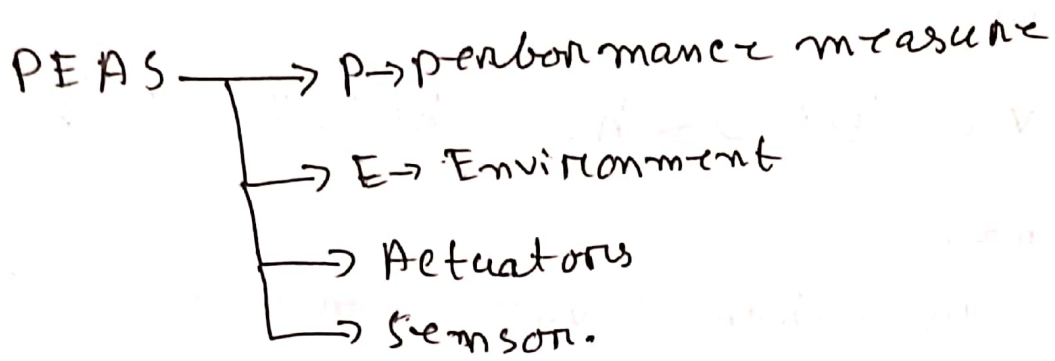 PEAS → P→ performance measure
→ E→ Environment
→ Actuators
→ Sensor.